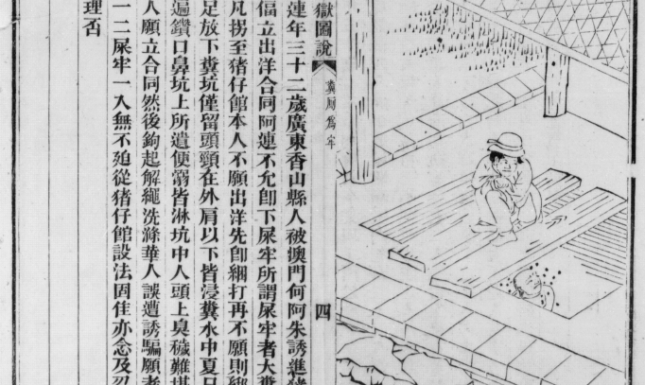 糞厠為牢
獄圖說
四
連年三十二歲廣東香山縣人被澳門何阿朱誘進猪
偪立出洋合同阿連不允卽下屎牢所謂屎牢者大糞
凡拐至猪仔館本人不願出洋先卽綑打再不願則縛
足放下糞坑僅留頭頸在外肩以下皆浸糞水中夏日
遍鑽口鼻坑上所遺便溺皆淋坑中人頭上臭穢難堪
人願立合同然後鉤起解繩洗滌華人誤遭誘騙願者
一二屎牢一入無不廹從猪仔館設法固佳亦念及忍
理否